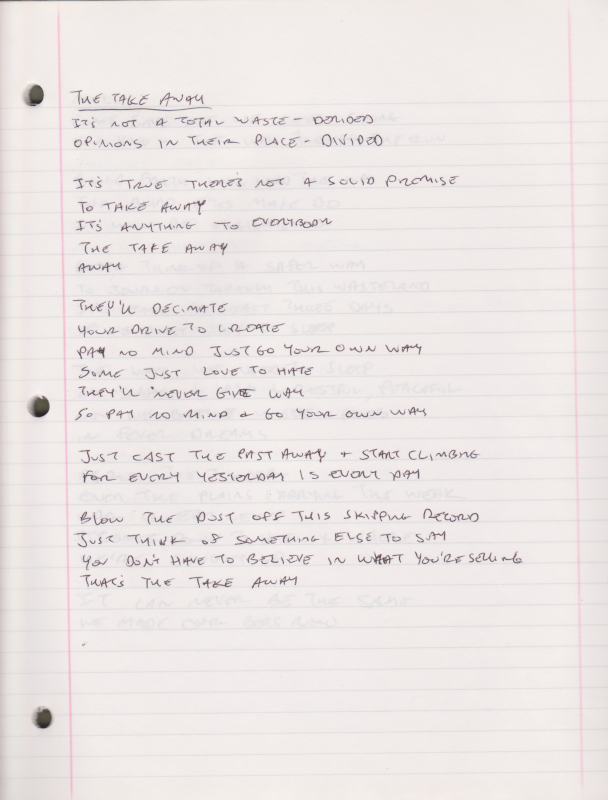 THE TAKE AWAY
IT'S NOT A TOTAL WASTE - DERIDED
OPINIONS IN THEIR PLACE - DIVIDED
IT'S TRUE THERE'S NOT A SOLID PROMISE
TO TAKE AWAY
IT'S ANYTHING TO EVERYBODY
THE TAKE AWAY
AWAY
THEY'LL DECIMATE
YOUR DRIVE TO CREATE
PAY NO MIND JUST GO YOUR OWN WAY
SOME JUST LOVE TO HATE
THEY'LL NEVER GIVE WAY
SO PAY NO MIND & GO YOUR OWN WAY
JUST CAST THE PAST AWAY + START CLIMBING
FOR EVERY YESTERDAY IS EVERY DAY
BLOW THE DUST OFF THIS SKIPPING RECORD
JUST THINK OF SOMETHING ELSE TO SAY
YOU DON'T HAVE TO BELIEVE IN WHAT YOU'RE SELLING
THAT'S THE TAKE AWAY